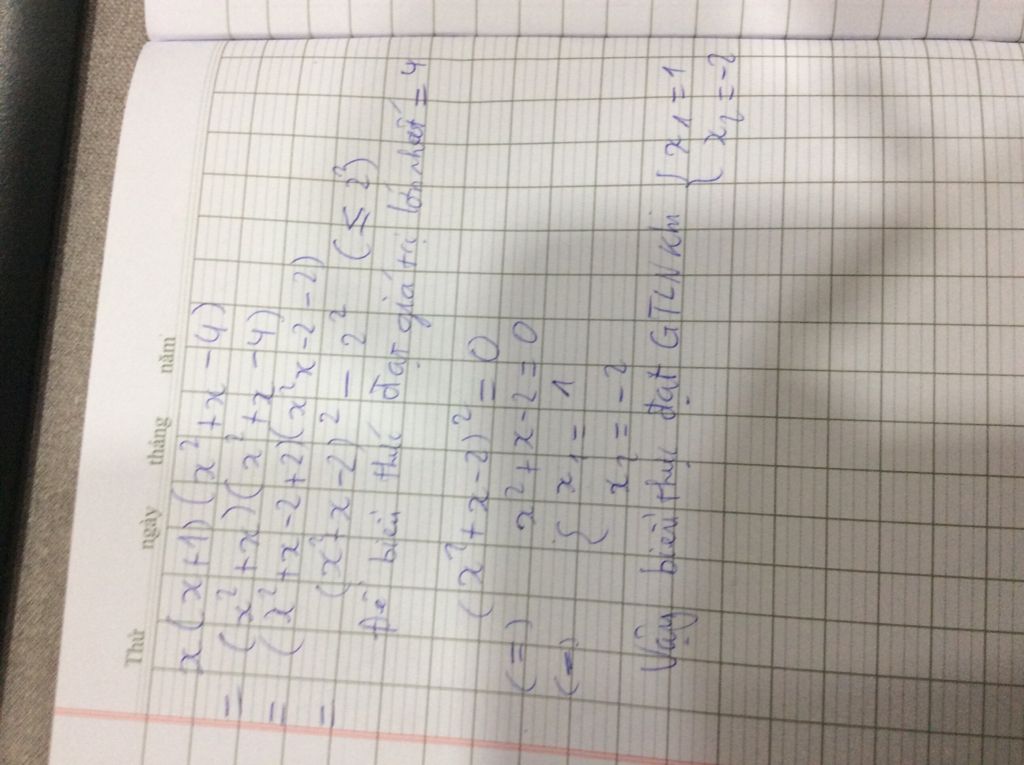 Thứ ngày tháng năm
x(x+1)(x²+x-4)
= (x²+x)(x²+x-4)
= (x²+x-2+2)(x²x-2-2)
= (x²+x-2)² - 2² (≤ 2²)
Để biểu thức đạt giá trị lớn nhất = 4
(x²+x-2)² = 0
(=) x²+x-2=0
(=) { x₁ = 1
x₂ = -2
Vậy biểu thức đạt GTLN khi { x₁ = 1
x₂ = -2